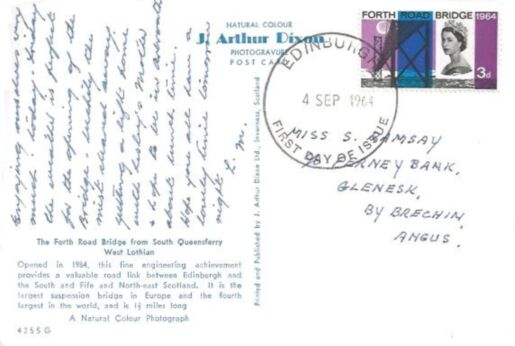 Enjoying ourselves very
much today. Today
the weather is perfect
for the opening of the
Bridge - luckily the
mist cleared and
getting a lift home
with Lesley's Mother
& hope to be in
about lunch time.
Hope you all have a
lovely time tomorrow
night. L. M.
The Forth Road Bridge from South Queensferry
West Lothian
Opened in 1964, this fine engineering achievement
provides a valuable road link between Edinburgh and
the South and Fife and North-east Scotland. It is the
largest suspension bridge in Europe and the fourth
largest in the world, and is 1½ miles long
A Natural Colour Photograph
4255G
NATURAL COLOUR
J. Arthur Dixon
PHOTOGRAVURE
POST CARD
Printed and Published by J. Arthur Dixon Ltd., Inverness, Scotland
FORTH ROAD BRIDGE 1964
3d
EDINBURGH
4 SEP 1964
FIRST DAY OF ISSUE
MISS S. RAMSAY
BANK,
GLENESK,
BY BRECHIN,
ANGUS.